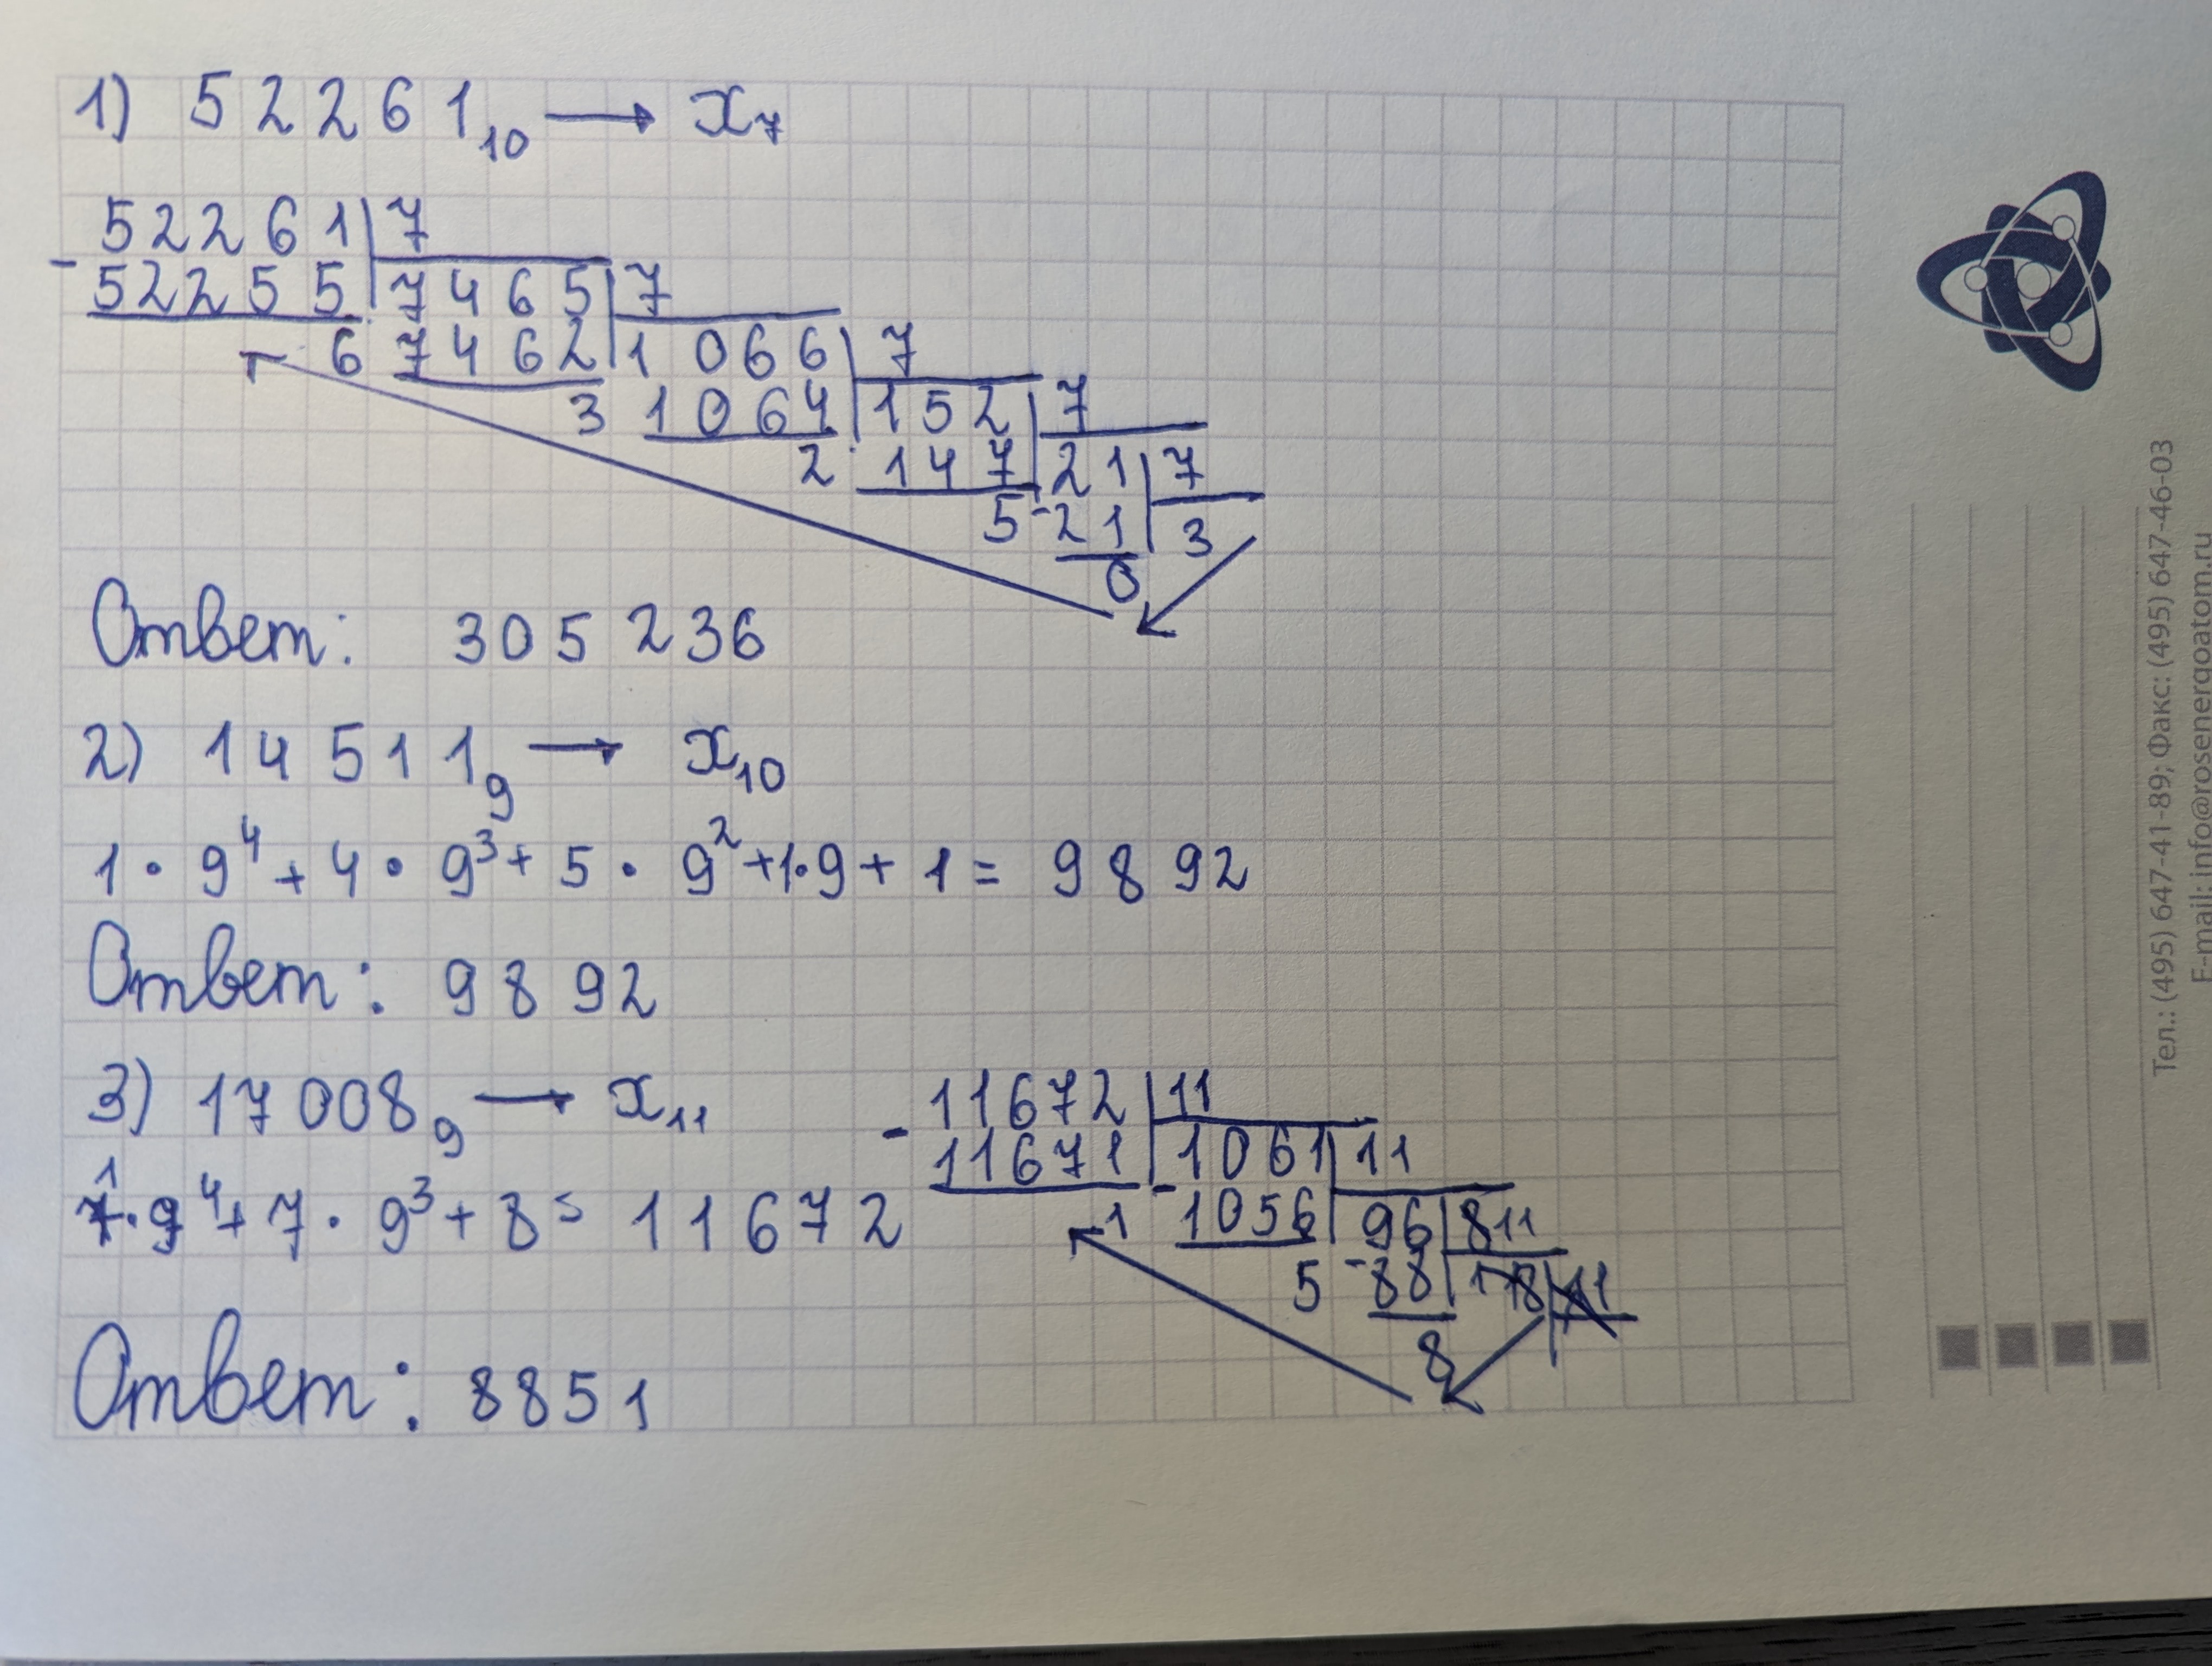 1) 52261₁₀ → x₇
52261 | 7
- 52255 | 7465 | 7
6 7462 | 1066 | 7
3 1064 | 152 | 7
2 147 | 21 | 7
5 - 21 | 3
0
Ответ: 305236
2) 14511₉ → x₁₀
1 · 9⁴ + 4 · 9³ + 5 · 9² + 1·9 + 1 = 9892
Ответ: 9892
3) 17008₉ → x₁₁
1·9⁴ + 7 · 9³ + 8 = 11672
- 11672 | 11
11671 | 1061 | 11
1 - 1056 | 96 | 11
5 - 88 | 8
8
Ответ: 8851
Тел.: (495) 647-41-89; Факс: (495) 647-46-03
E-mail: info@rosenergoatom.ru